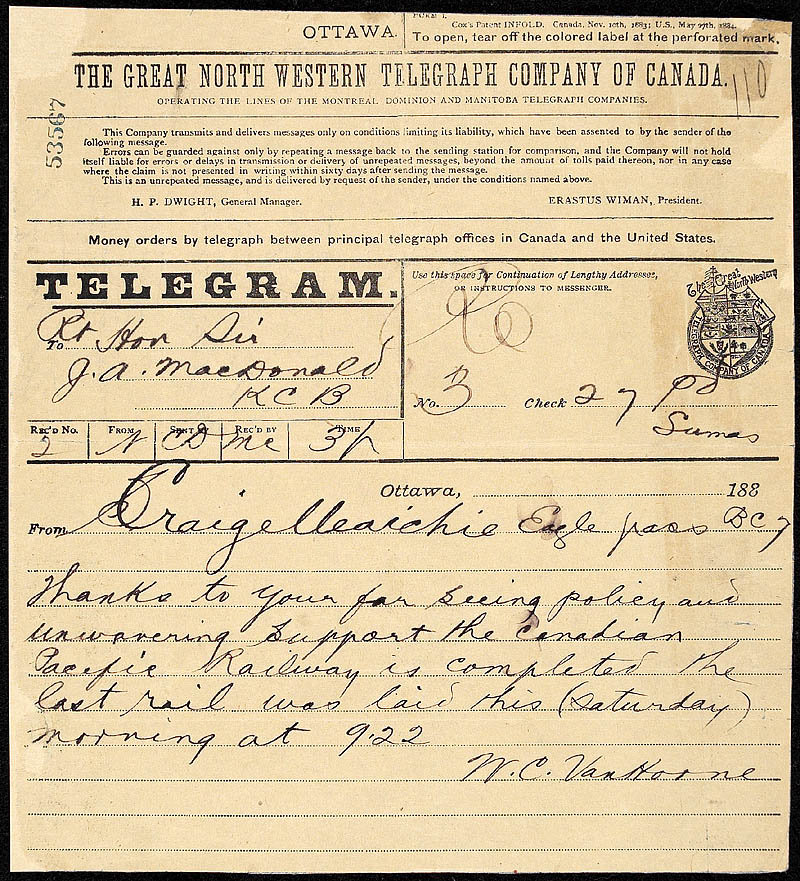 OTTAWA.
Cox's Patent INFOLD. Canada, Nov. 10th, 1883; U.S., May 27th, 1884.
To open, tear off the colored label at the perforated mark.
THE GREAT NORTH WESTERN TELEGRAPH COMPANY OF CANADA.
110
OPERATING THE LINES OF THE MONTREAL DOMINION AND MANITOBA TELEGRAPH COMPANIES.
53567
This Company transmits and delivers messages only on conditions limiting its liability, which have been assented to by the sender of the
following message.
Errors can be guarded against only by repeating a message back to the sending station for comparison, and the Company will not hold
itself liable for errors or delays in transmission or delivery of unrepeated messages, beyond the amount of tolls paid thereon, nor in any case
where the claim is not presented in writing within sixty days after sending the message.
This is an unrepeated message, and is delivered by request of the sender, under the conditions named above.
H. P. DWIGHT, General Manager. ERASTUS WIMAN, President.
Money orders by telegraph between principal telegraph offices in Canada and the United States.
TELEGRAM.
Use this space for Continuation of Lengthy Addresses,
OR INSTRUCTIONS TO MESSENGER.
The Great North Western
TELEGRAPH COMPANY OF CANADA
To Rt Hon Sir
J. A. MacDonald
K C B
No. 3 Check 27 Pd
Sumas
REC'D No. FROM SENT BY REC'D BY TIME
2 N CD Mc
Ottawa, 188
From Craigellleaichie Eagle pass BC 7
Thanks to your far seeing policy and
unwavering support the Canadian
Pacific Railway is completed the
last rail was laid this (Saturday)
morning at 9.22
W. C. VanHorne